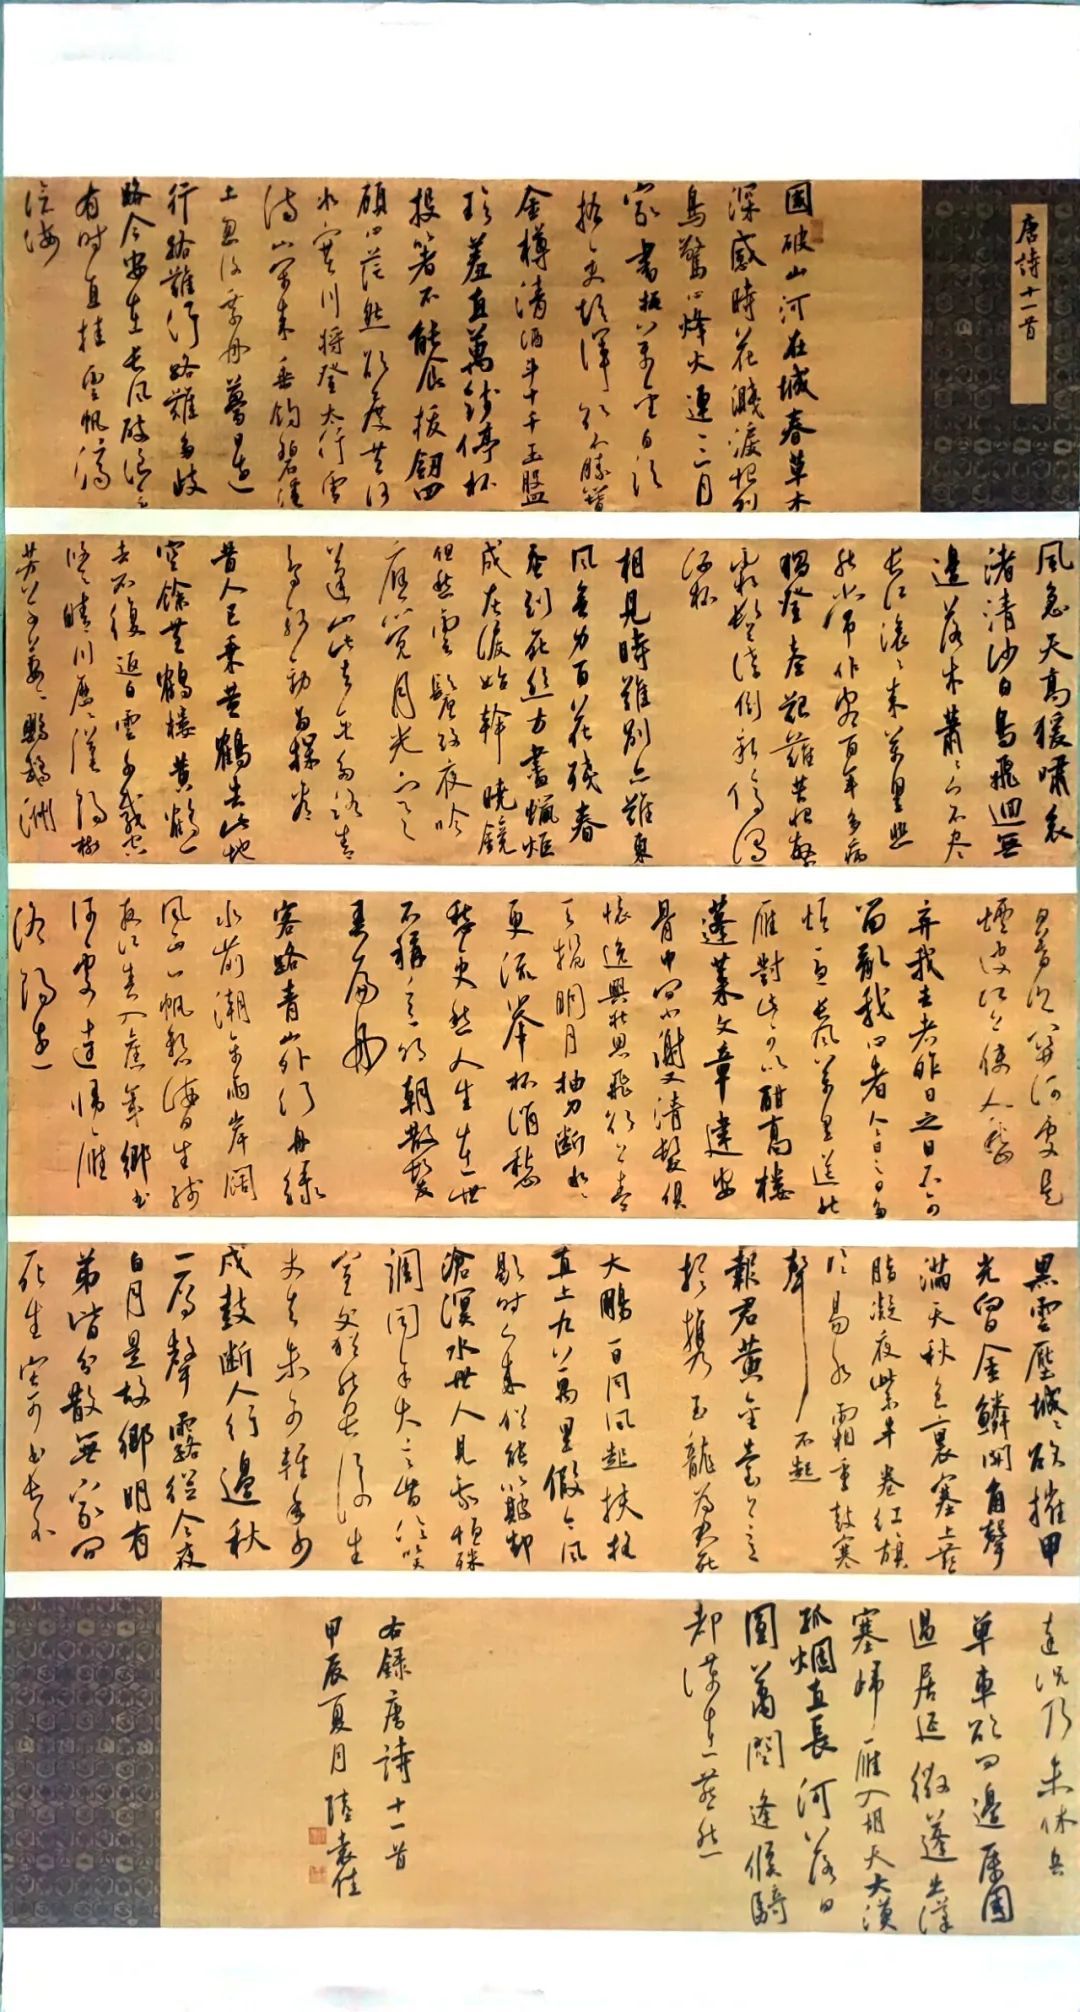 唐詩十一首
國破山河在城春草木
深感時花濺淚恨別
鳥驚心烽火連三月
家書抵萬金白頭
搔更短渾欲不勝簪
金樽清酒斗十千玉盤
珍羞直萬錢停杯
投箸不能食拔劍四
顧心茫然欲度黃河
冰塞川將登太行雪
滿山閑來垂釣碧溪
上忽復乘舟夢日邊
行路難行路難多歧
路今安在長風破浪會
有時直挂雲帆濟
滄海
風急天高猿嘯哀
渚清沙白鳥飛迴無
邊落木蕭〻下不盡
長江滾〻來萬里悲
秋常作客百年多病
獨登臺艱難苦恨繁
霜鬢潦倒新停濁
酒杯
相見時難別亦難東
風無力百花殘春
蠶到死絲方盡蠟炬
成灰淚始幹曉鏡
但愁雲鬢改夜吟
應覺月光寒
蓬山此去無多路青
鳥殷勤為探看
昔人已乘黃鶴去此地
空餘黃鶴樓黃鶴一
去不復返白雲千載空
悠〻晴川歷〻漢陽樹
芳草萋〻鸚鵡洲
日暮鄉關何處是
煙波江上使人愁
弃我去者昨日之日不可
留亂我心者今日之日多
煩憂長風萬里送秋
雁對此可以酣高樓
蓬萊文章建安
骨中間小謝又清發俱
懷逸興壯思飛欲上青
天攬明月抽刀斷水〻
更流舉杯消愁
愁更愁人生在世
不稱意明朝散髮
弄扁舟
客路青山外行舟綠
水前潮平兩岸闊
風正一帆懸海日生殘
夜江春入舊年鄉書
何處達歸雁
洛陽邊
黑雲壓城〻欲摧甲
光向日金鱗開角聲
滿天秋色裏塞上燕
脂凝夜紫半卷紅旗
臨易水霜重鼓寒
聲不起
報君黃金臺上意
提攜玉龍為君死
大鵬一日同風起扶搖
直上九萬里假令風
歇時下來猶能簸卻
滄溟水世人見我恒殊
調聞余大言皆冷笑
宣父猶能畏後生
丈夫未可輕年少
戍鼓斷人行邊秋
一雁聲露從今夜
白月是故鄉明有
弟皆分散無家問
死生寄書長不
達況乃未休兵
單車欲問邊屬國
過居延徵蓬出漢
塞歸雁入胡天大漠
孤烟直長河落日
圓蕭關逢候騎
都護在燕然
右錄唐詩十一首
甲辰夏月陸袁佳